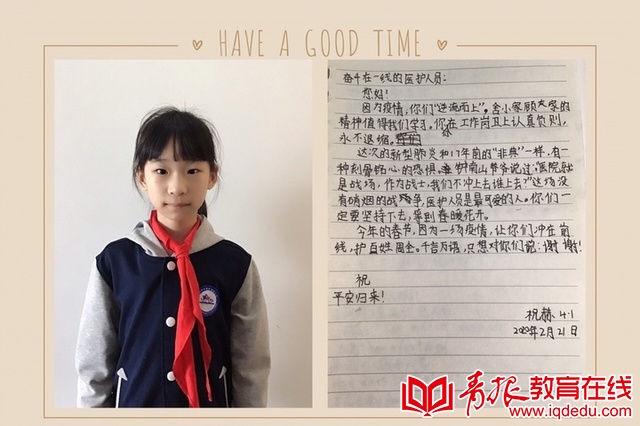 HAVE A GOOD TIME
奋斗在一线的医护人员:
您好!
因为疫情,你们"逆流而上"。舍小家顾大家的
精神值得我们学习。你们在工作岗卫上认真负则,
永不退缩。
这次的新型肺炎和17年前的"非典"一样,有一
种刻骨铭心的恐惧。钟南山爷爷说过:"医院就
是战场,作为战士,我们不冲上去谁上去?"这场没
有硝烟的战争,医护人员是最可爱的人。你们一
定要坚持下去,等到春暖花开。
今年的春节,因为一场疫情,让你们冲在前
线,护百姓周全。千言万语,只想对你们说:谢谢!
祝
平安归来!
祝赫 4.1
2020年2月21日
青报教育在线
www.iqdedu.com